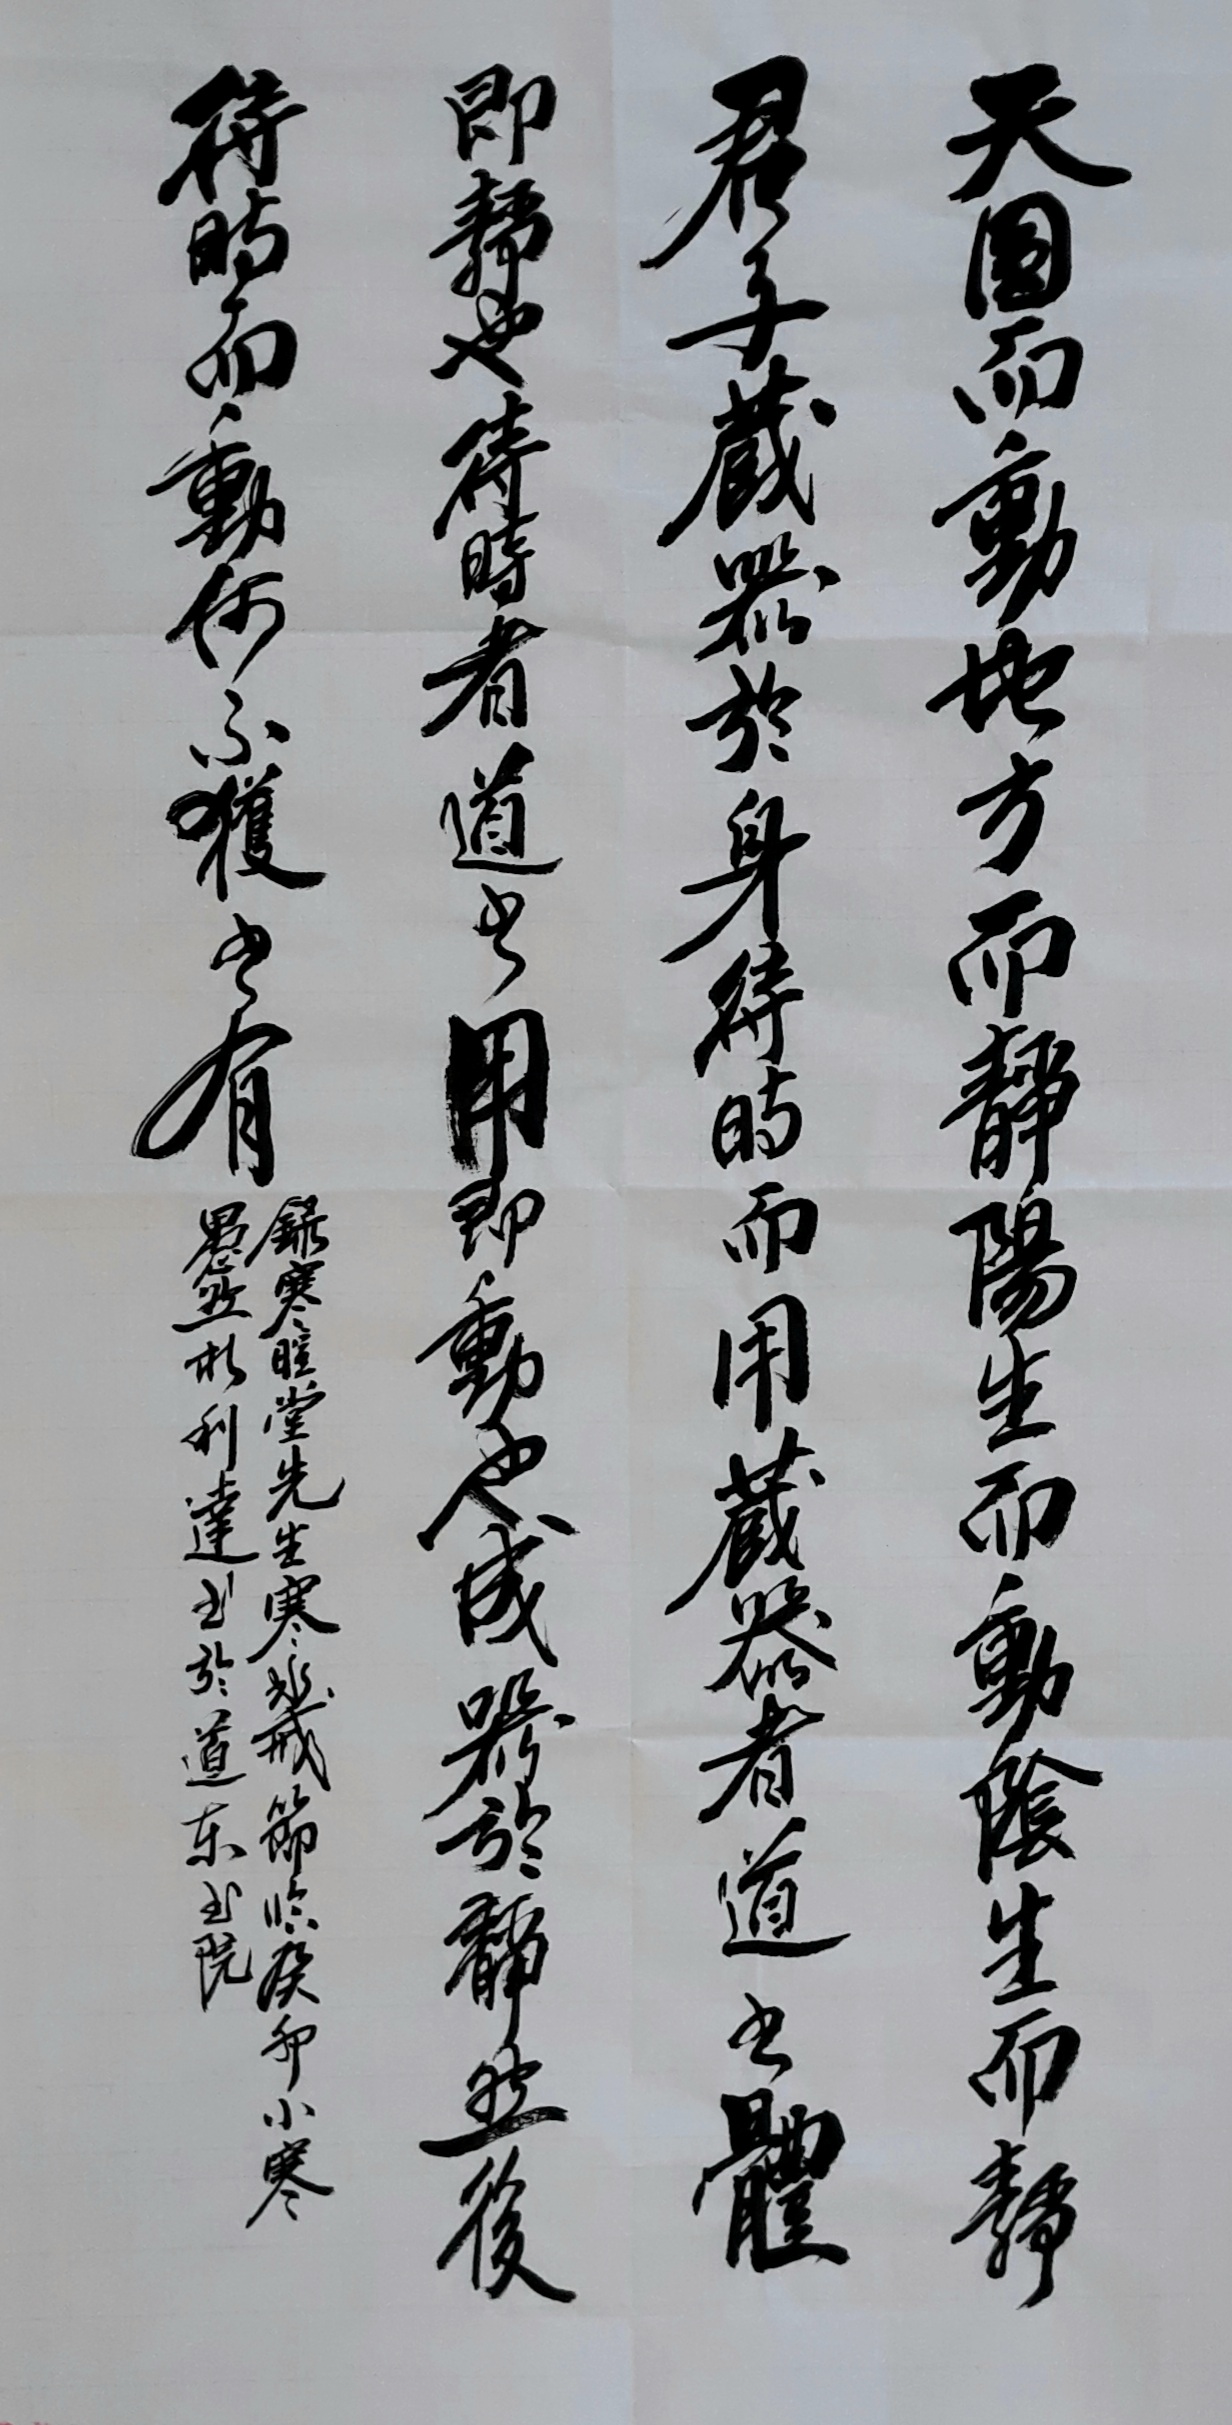 天圆而動地方而靜陽生而動陰生而靜
君子藏器於身待時而用藏器者道之體
即靜也待時者道之用即動也成器於靜然後
待時而動何不獲之有
錄寒暄堂先生寒 戒節臨癸卯小寒
愚然 利達书於道东书院